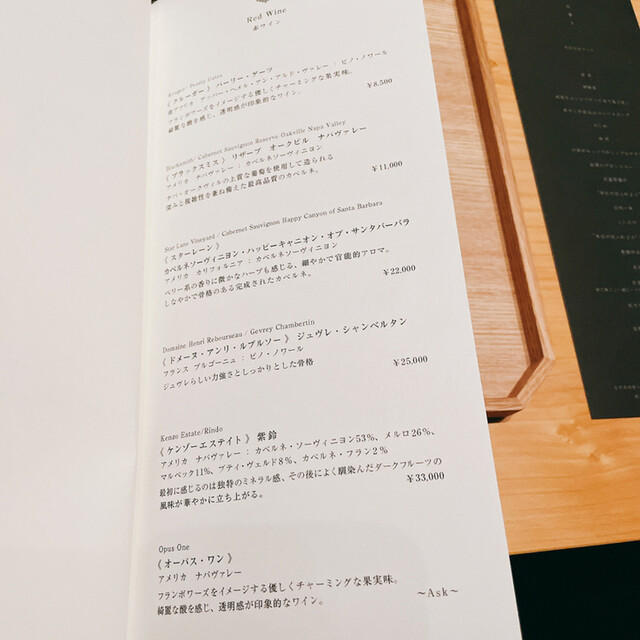 Red Wine
赤ワイン
Kruger / Pearly Gates
《クルーガー》 パーリー・ゲーツ
南アフリカ アッパー・ヘメル・アン・アルド・ヴァレー：ピノ・ノワール
フランボワーズをイメージする優しくチャーミングな果実味。
綺麗な酸を感じ、透明感が印象的なワイン。
¥8,500
Blacksmith / Cabernet Sauvignon Reserve Oakville Napa Valley
《ブラックスミス》 リザーブ オークビル ナパヴァレー
アメリカ ナパヴァレー：カベルネソーヴィニヨン
ナパ・オークヴィルの上質な葡萄を使用して造られる
深みと複雑性を兼ね備えた最高品質のカベルネ。
¥11,000
Star Lane Vineyard / Cabernet Sauvignon Happy Canyon of Santa Barbara
《スターレーン》
カベルネソーヴィニヨン・ハッピーキャニオン・オブ・サンタバーバラ
アメリカ カリフォルニア：カベルネソーヴィニヨン
ベリー系の香りに微かなハーブも感じる、細やかで官能的アロマ。
しなやかで骨格のある完成されたカベルネ。
¥22,000
Domaine Henri Rebourseau / Gevrey Chambertin
《ドメーヌ・アンリ・ルブルソー》 ジュヴレ・シャンベルタン
フランス ブルゴーニュ：ピノ・ノワール
ジュヴレらしい力強さとしっかりとした骨格
¥25,000
Kenzo Estate/Rindo
《ケンゾーエステイト》 紫鈴
アメリカ ナパヴァレー：カベルネ・ソーヴィニヨン53％、メルロ26％、
マルベック11％、プティ・ヴェルド8％、カベルネ・フラン2％
最初に感じるのは独特のミネラル感、その後によく馴染んだダークフルーツの
風味が華やかに立ち上がる。
¥33,000
Opus One
《オーパス・ワン》
アメリカ ナパヴァレー
フランボワーズをイメージする優しくチャーミングな果実味。
綺麗な酸を感じ、透明感が印象的なワイン。
～Ask～